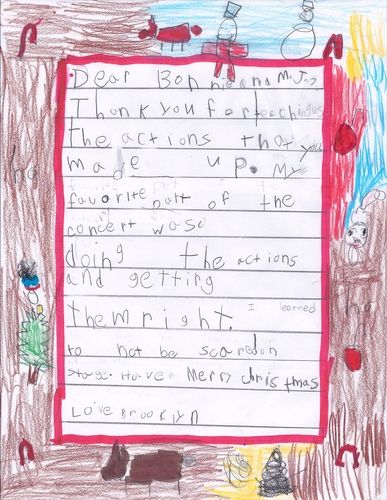 Dear Bonnie and M.J.,
Thank you for teaching us
the actions that you
made up. My
favorite part of the
concert was
doing the actions
and getting
them right. I learned
to not be scared on
stage. Have a Merry christmas
Love Brooklyn
ho
ho